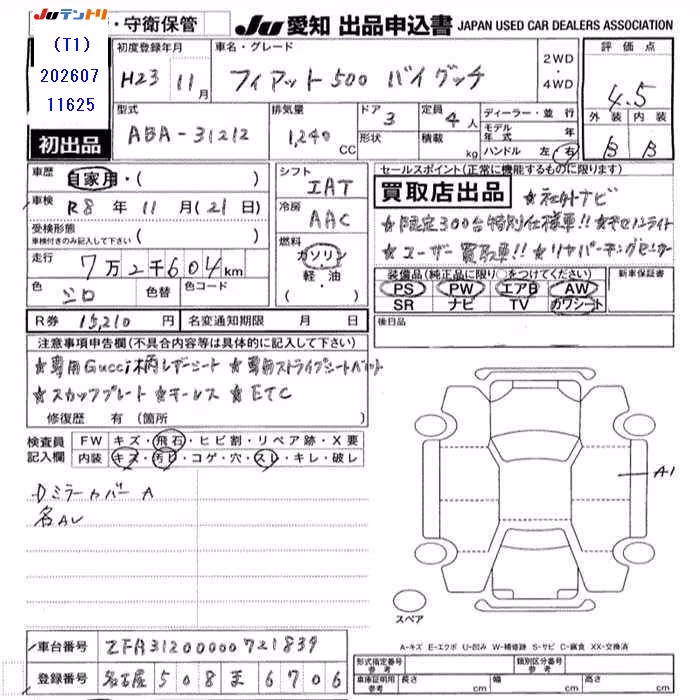 JUテントリ ・守衛保管 JU 愛知 出品申込書 JAPAN USED CAR DEALERS ASSOCIATION
(T1)
202607
11625
初出品
初度登録年月 車名・グレード 2WD・4WD 評価点
H23 11月 フィアット500 バイグッチ 4.5
型式 排気量 ドア 3 定員 4人 ディーラー・並行 外装 内装
ABA-31212 1,240 CC 形状 積載 kg モデル年式 年 B B
ハンドル 左・右
車歴 自家用・( ) シフト IAT セールスポイント(正常に機能するものに限ります)
車検 R8年 11月(21日) 冷房 AAC 買取店出品 ☆社外ナビ
受検形態 車検付きのみ記入して下さい ( ) ☆限定300台特別仕様車!!
走行 7万2千604km 燃料 ガソリン・軽・油 ( ) ☆ユーザー買取車!! ☆リヤパーキングセンサー
色 シロ 色替 色コード 装備品(純正品に限り○をつけてください) 新車保証書
PS PW エアB AW
SR ナビ TV カワシート
R券 15,210円 名変通知期限 月 日 後日品
注意事項申告欄(不具合内容等は具体的に記入して下さい)
☆専用Gucci柄レザーシート ☆専用ストライプシートベルト
☆スカッフプレート ☆キーレス ☆ETC
修復歴 有(箇所 )
検査員記入欄 FW キズ・飛石・ヒビ割・リペア跡・X要
内装 キズ・汚レ・コゲ・穴・スレ・キレ・破レ
Dミラーカバー A
A1
スペア
A-キズ E-エクボ U-凹み W-補修跡 S-サビ C-腐食 XX-交換済
車台番号 ZFA31200000721839
登録番号 名古屋 508 ま 6706
形式指定番号 参考 類別区分番号 参考
車庫証明用 参考 長さ cm 幅 cm 高さ cm